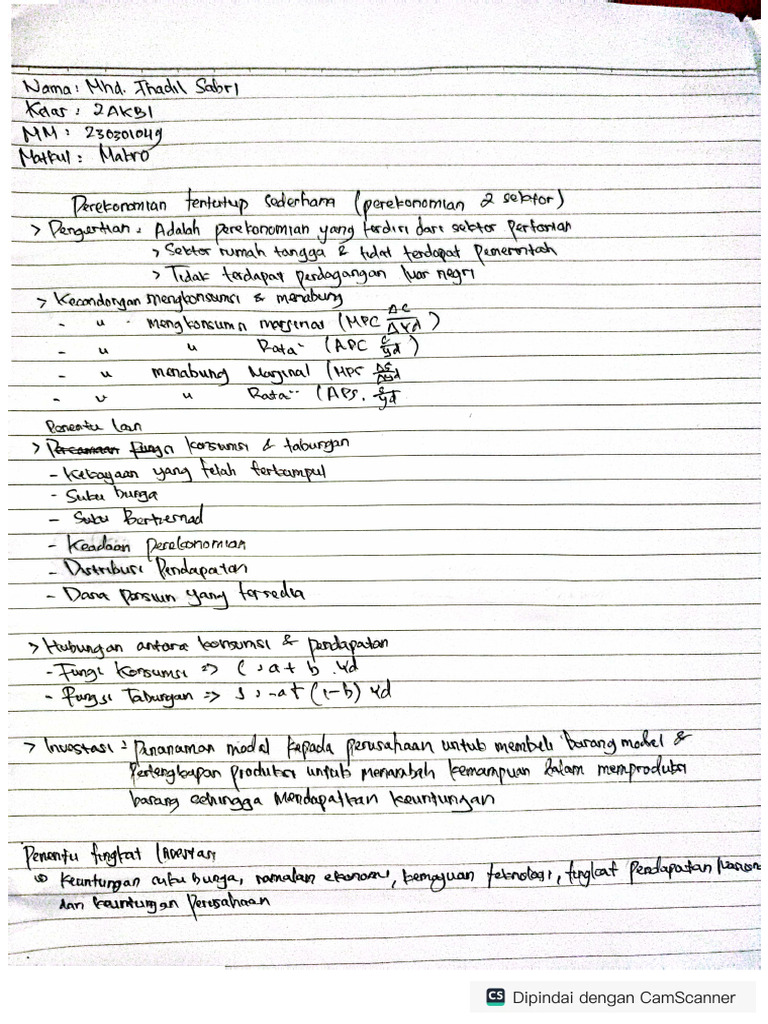 Nama : Mhd. Fhadil Sabri
Kelas : 2AKB1
NIM : 230301049
Matkul : Makro
Perekonomian tertutup sederhana (perekonomian 2 sektor)
> Pengertian : Adalah perekonomian yang terdiri dari sektor
> Sektor rumah tangga & tidak terdapat Pemerintah
> Tidak terdapat perdagangan luar negri
> Kecondongan mengkonsumsi & menabung
- " mengkonsumsi marginal (MPC ΔC/ΔYd)
- " " Rata" (APC C/Yd)
- " menabung Marginal (MPS ΔS/ΔYd
- " " Rata" (APS. S/Yd
Penentu lain
> fungsi konsumsi & tabungan
- Kekayaan yang telah terkumpul
- Suku bunga
- Suku
- Keadaan perekonomian
- Distribusi Pendapatan
- Dana pensiun yang tersedia
> Hubungan antara konsumsi & pendapatan
- Fungsi Konsumsi => C = a + b . Yd
- Fungsi Tabungan => S = -a + (1-b) Yd
> Investasi : Penanaman modal kepada perusahaan untuk membeli barang modal &
Perlengkapan Produksi untuk menambah kemampuan dalam memproduksi
barang sehingga Mendapatkan keuntungan
Penentu tingkat Investasi
=> Keuntungan suku bunga, ramalan ekonomi, kemajuan teknologi, tingkat Pendapatan
dan keuntungan Perusahaan
CS Dipindai dengan CamScanner